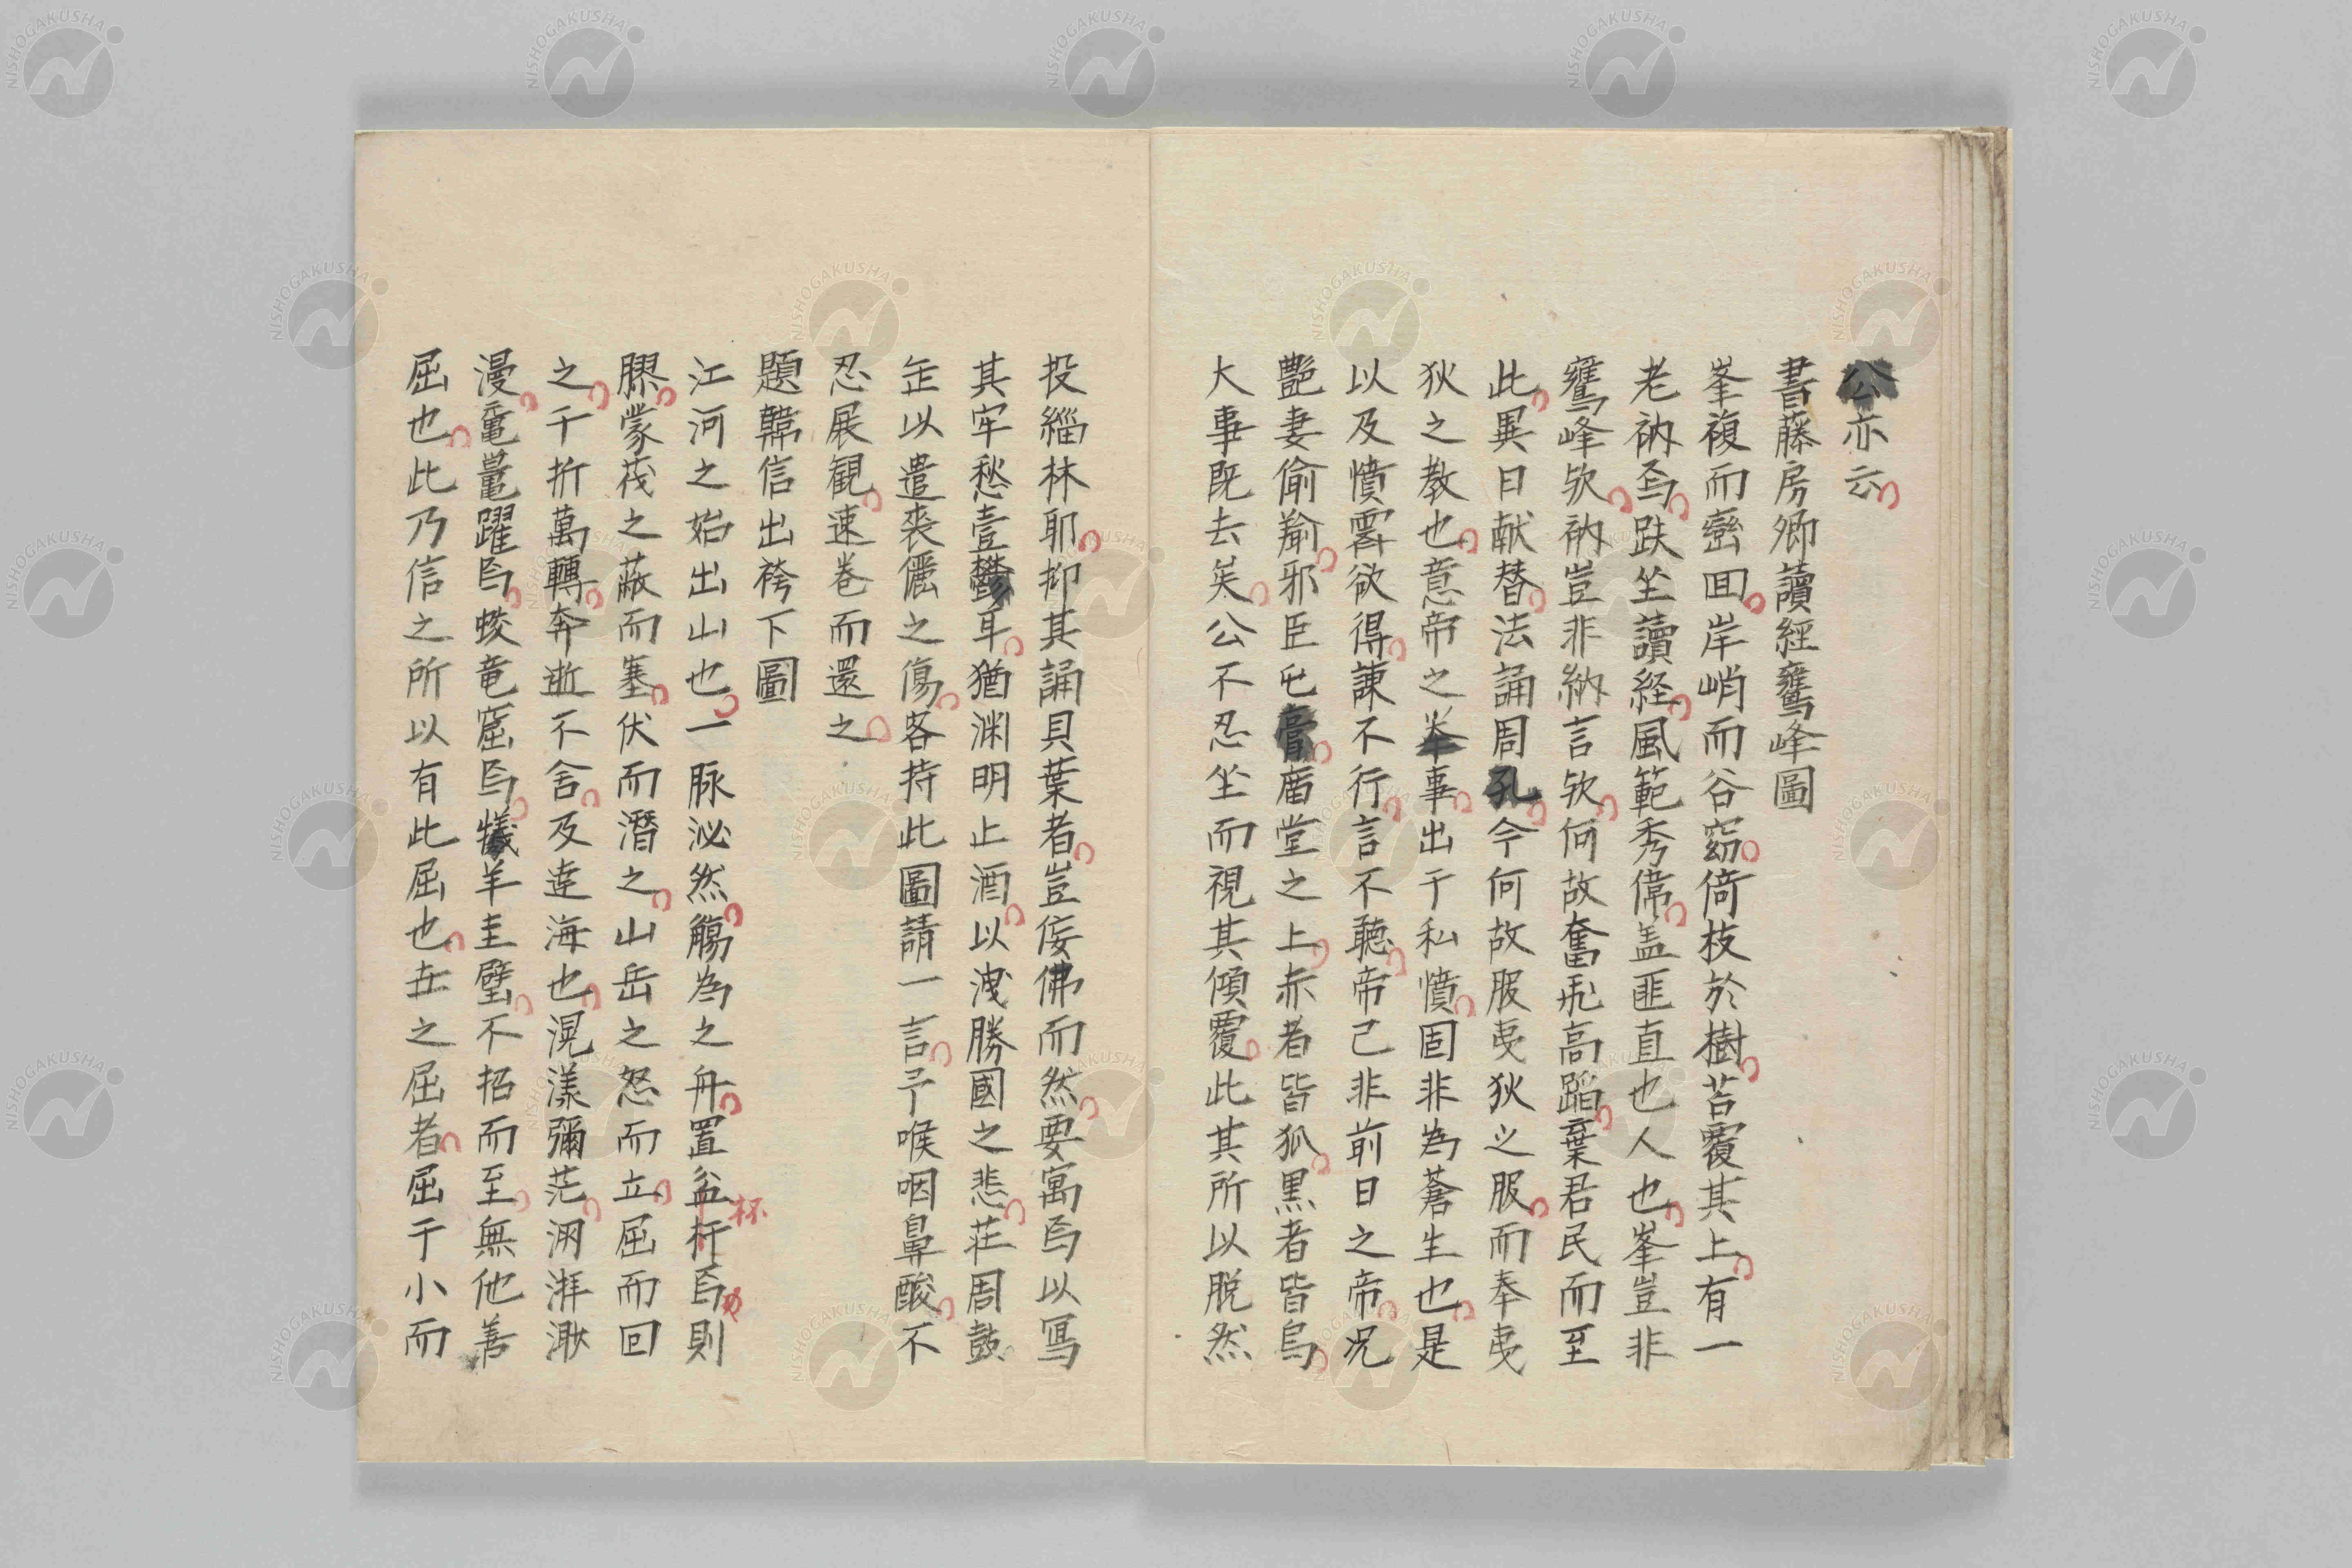 公亦云
書藤房卿讀經鷲峰圖
峯複而巒囬岸峭而谷窈倚枝於樹苔覆其上有一
老衲焉趺坐讀経風範秀偉盖匪直也人也峯豈非
鷲峰欤衲豈非納言欤何故奮飛高蹈棄君民而至
此異日献替法誦周孔今何故服夷狄之服而奉夷
狄之教也意帝之挙事出于私憤固非為蒼生也是
以及憤雪欲得諫不行言不聽帝己非前日之帝况
艶妻偷
邪臣屯膏
堂之上赤者皆狐黒者皆烏
大事既去矣公不忍坐而視其傾覆此其所以脱然
投緇林耶抑其誦貝葉者豈佞佛而然要寓焉以寫
其牢愁壹鬱耳猶渊明止酒以洩勝國之悲荘周鼓
缶以遣喪儷之傷客持此圖請一言予喉咽鼻酸不
忍展観速巻而還之
題韓信出袴下圖
江河之始出山也一脉泌然觴為之舟置盆杯焉則
膠蒙茂之蔽而塞伏而潛之山岳之怒而立屈而回
之千折萬轉奔逝不舍及達海也滉漾彌茫汹湃渺
漫黿鼉躍焉蛟竜窟焉犧羊圭璧不招而至無他善
屈也此乃信之所以有此屈也世之屈者屈于小而
NISHOGAKUSHA